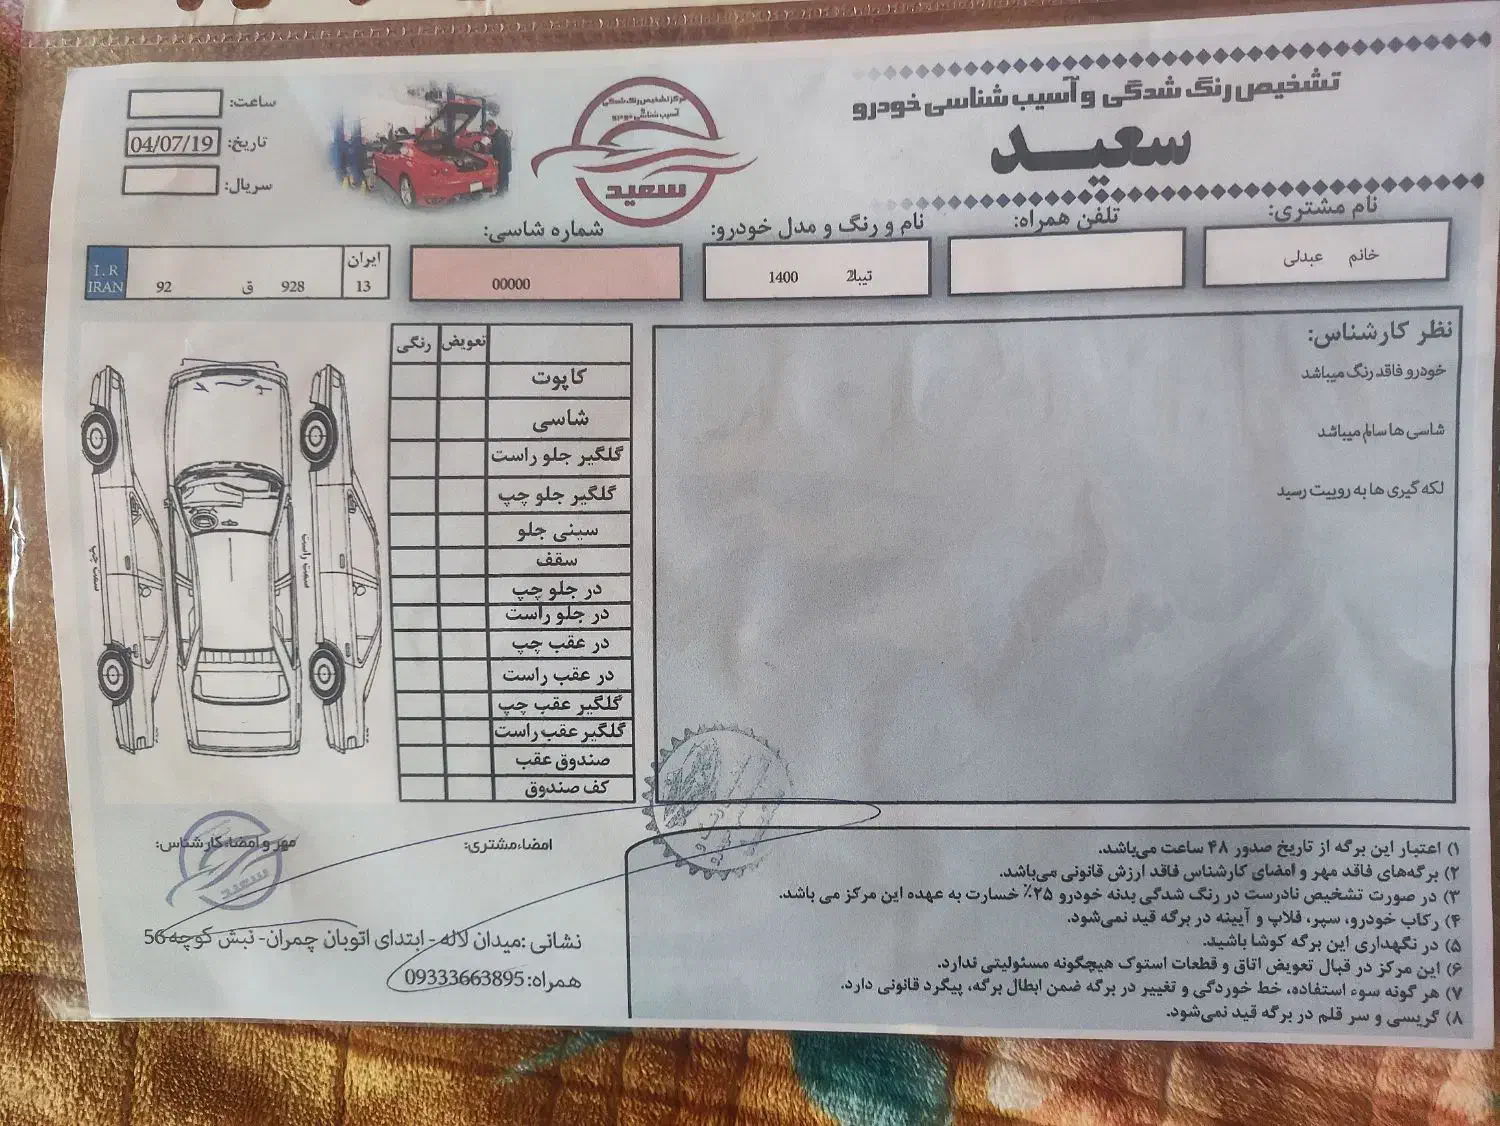 تشخیص رنگ شدگی و آسیب شناسی خودرو
سعید
مرکز تشخیص رنگ شدگی
و
آسیب شناسی خودرو
سعید
ساعت:
تاریخ: 04/07/19
سریال:
نام مشتری:
خانم عبدلی
تلفن همراه:
نام و رنگ و مدل خودرو:
تیبا2 1400
شماره شاسی:
00000
ایران
13
928 ق 92
I.R
IRAN
نظر کارشناس:
خودرو فاقد رنگ میباشد
شاسی ها سالم میباشد
لکه گیری ها به روییت رسید
تعویض رنگی
کاپوت
شاسی
گلگیر جلو راست
گلگیر جلو چپ
سینی جلو
سقف
در جلو چپ
در جلو راست
در عقب چپ
در عقب راست
گلگیر عقب چپ
گلگیر عقب راست
صندوق عقب
کف صندوق
سمت راست
سمت چپ
۱) اعتبار این برگه از تاریخ صدور ۴۸ ساعت می‌باشد.
۲) برگه‌های فاقد مهر و امضای کارشناس فاقد ارزش قانونی می‌باشد.
۳) در صورت تشخیص نادرست در رنگ شدگی بدنه خودرو ۲۵٪ خسارت به عهده این مرکز می باشد.
۴) رکاب خودرو، سپر، فلاپ و آیینه در برگه قید نمی‌شود.
۵) در نگهداری این برگه کوشا باشید.
۶) این مرکز در قبال تعویض اتاق و قطعات استوک هیچگونه مسئولیتی ندارد.
۷) هر گونه سوء استفاده، خط خوردگی و تغییر در برگه ضمن ابطال برگه، پیگرد قانونی دارد.
۸) گریسی و سر قلم در برگه قید نمی‌شود.
امضاء مشتری:
مهر و امضاء کارشناس:
سعید
نشانی :میدان لاله- ابتدای اتوبان چمران- نبش کوچه 56
همراه: 09333663895